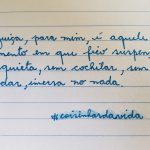 guiça, para mim, é aquele
mento em que fico suspen
squieta, sem cochilar, sem
dar, imersa no nada.
#coisinhasdavida